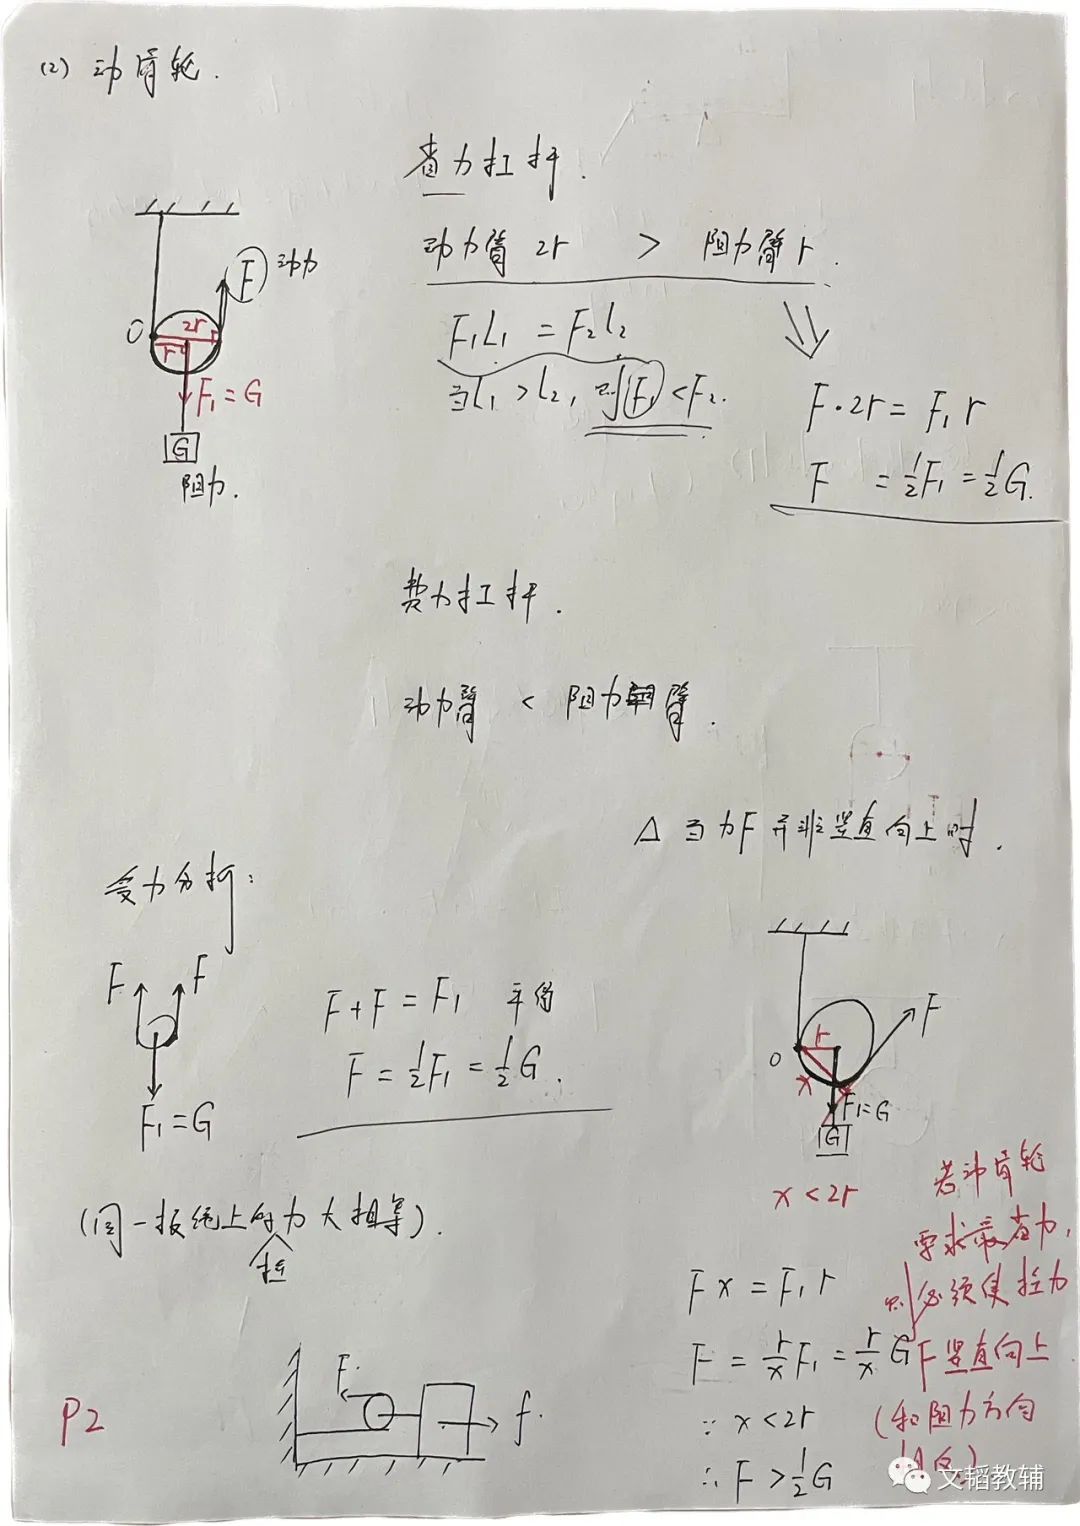 (2) 动滑轮.
省力杠杆.
动力臂 2r > 阻力臂 r.
F₁L₁ = F₂L₂
当L₁ > L₂, 则F₁ < F₂.
F 动力
O
2r
r
F₁ = G
G
阻力.
F·2r = F₁ r
F = ½F₁ = ½G.
费力杠杆.
动力臂 < 阻力臂.
△ 当力F并非竖直向上时.
受力分析:
F F
F₁ = G
F + F = F₁ 平衡
F = ½F₁ = ½G.
(同一根绳上的拉力大相等).
F
r
O
x
F₁ = G
G
x < 2r
若动滑轮
要求最省力,
则必须使拉力
F竖直向上
(和阻力方向
相反)
F x = F₁ r
F = r/x F₁ = r/x G
∵ x < 2r
∴ F > ½G
F
f.
P2
文韬教辅